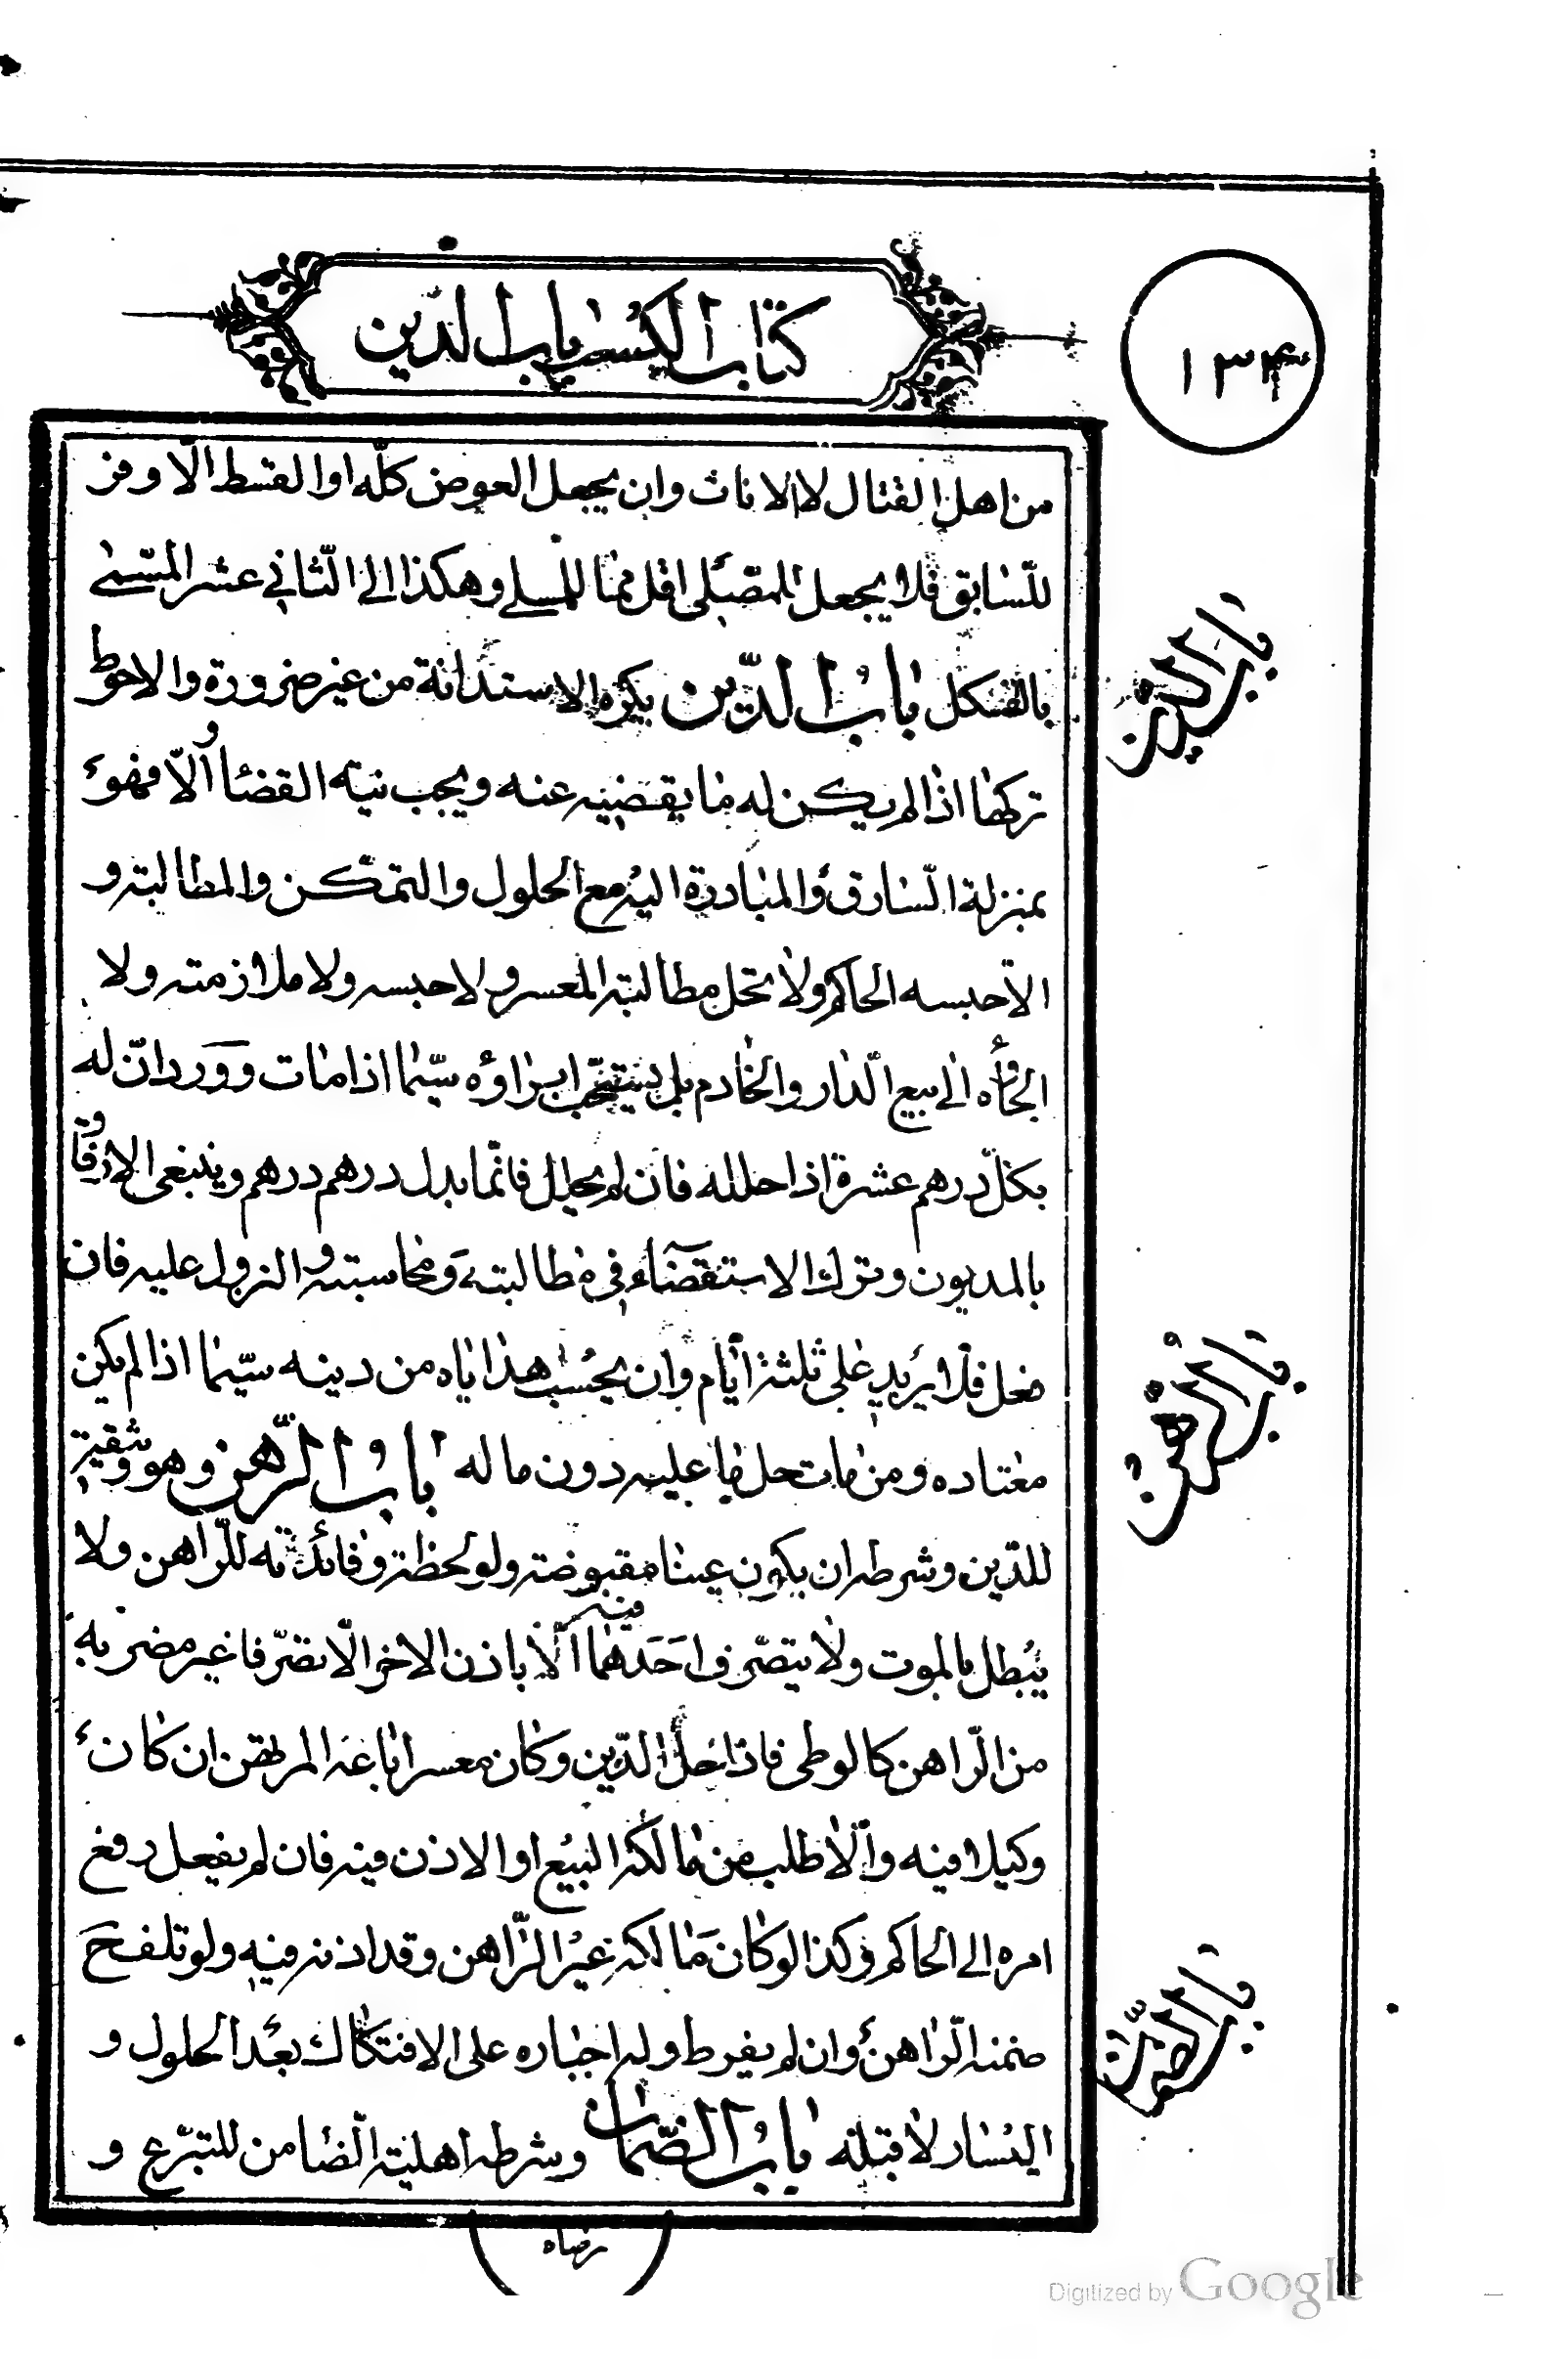 ١٣٤
كتاب الكسب باب الدّين
من اهل القتال لا الاناث وان يجعل العوض كلّه او القسط الاوفر
للسّابق فلا يجعل للمصلّى اقل ممّا للمسلى وهكذا الى الثّانى عشر المسمّى
بالفسكل باب الدّين يكره الاستدانة من غير ضرورة والاحوط
تركها اذا لم يكن له ما يقضيه عنه ويجب نيّة القضاء والّا فهو
بمنزلة السّارق والمبادرة اليه مع الحلول والتمكّن والمطالبة و
الّا حبسه الحاكم ولا تحل مطالبته المعسر ولا حبسه ولا ملازمته ولا
الجاؤه الى بيع الدّار والخادم بل يستحبّ ابراؤه سيّما اذا مات وورد انّ له
بكلّ درهم عشرة اذا حلله فان لم يحلل فانّما بدل درهم درهم وينبغى الارفاق
بالمديون وترك الاستقضاء فى مطالبته ومحاسبته والنزول عليه فان
فعل فلا يزيد على ثلثة ايّام وان يحسب هداياه من دينه سيّما اذا لم يكن
معتاده ومن مات حل ما عليه دون ماله باب الرّهن وهو وثيقة
للدّين وشرطه ان يكون عينا مقبوضة ولو لحظة وفائدته للرّاهن ولا
يبطل بالموت ولا يتصرّف احدهما فيه الّا باذن الاخر الّا تصرّفا غير مضر به
من الرّاهن كالوطى فاذا حلّ الدّين وكان معسرا باعه المرتهن ان كان
وكيلا فيه والّا طلب من مالكه البيع او الاذن فيه فان لم يفعل رفع
امره الى الحاكم وكذا لو كان مالكه غير الرّاهن وقد اذنه فيه ولو تلف ح
ضمنه الرّاهن وان لم يفرط وله اجباره على الافتكاك بعد الحلول و
اليسار لا قبله باب الضّمان وشرطه اهلية الضّامن للتبرّع و
رضاه
باب الدّين
باب الرّهن
باب الضّمان
Digitized by Google